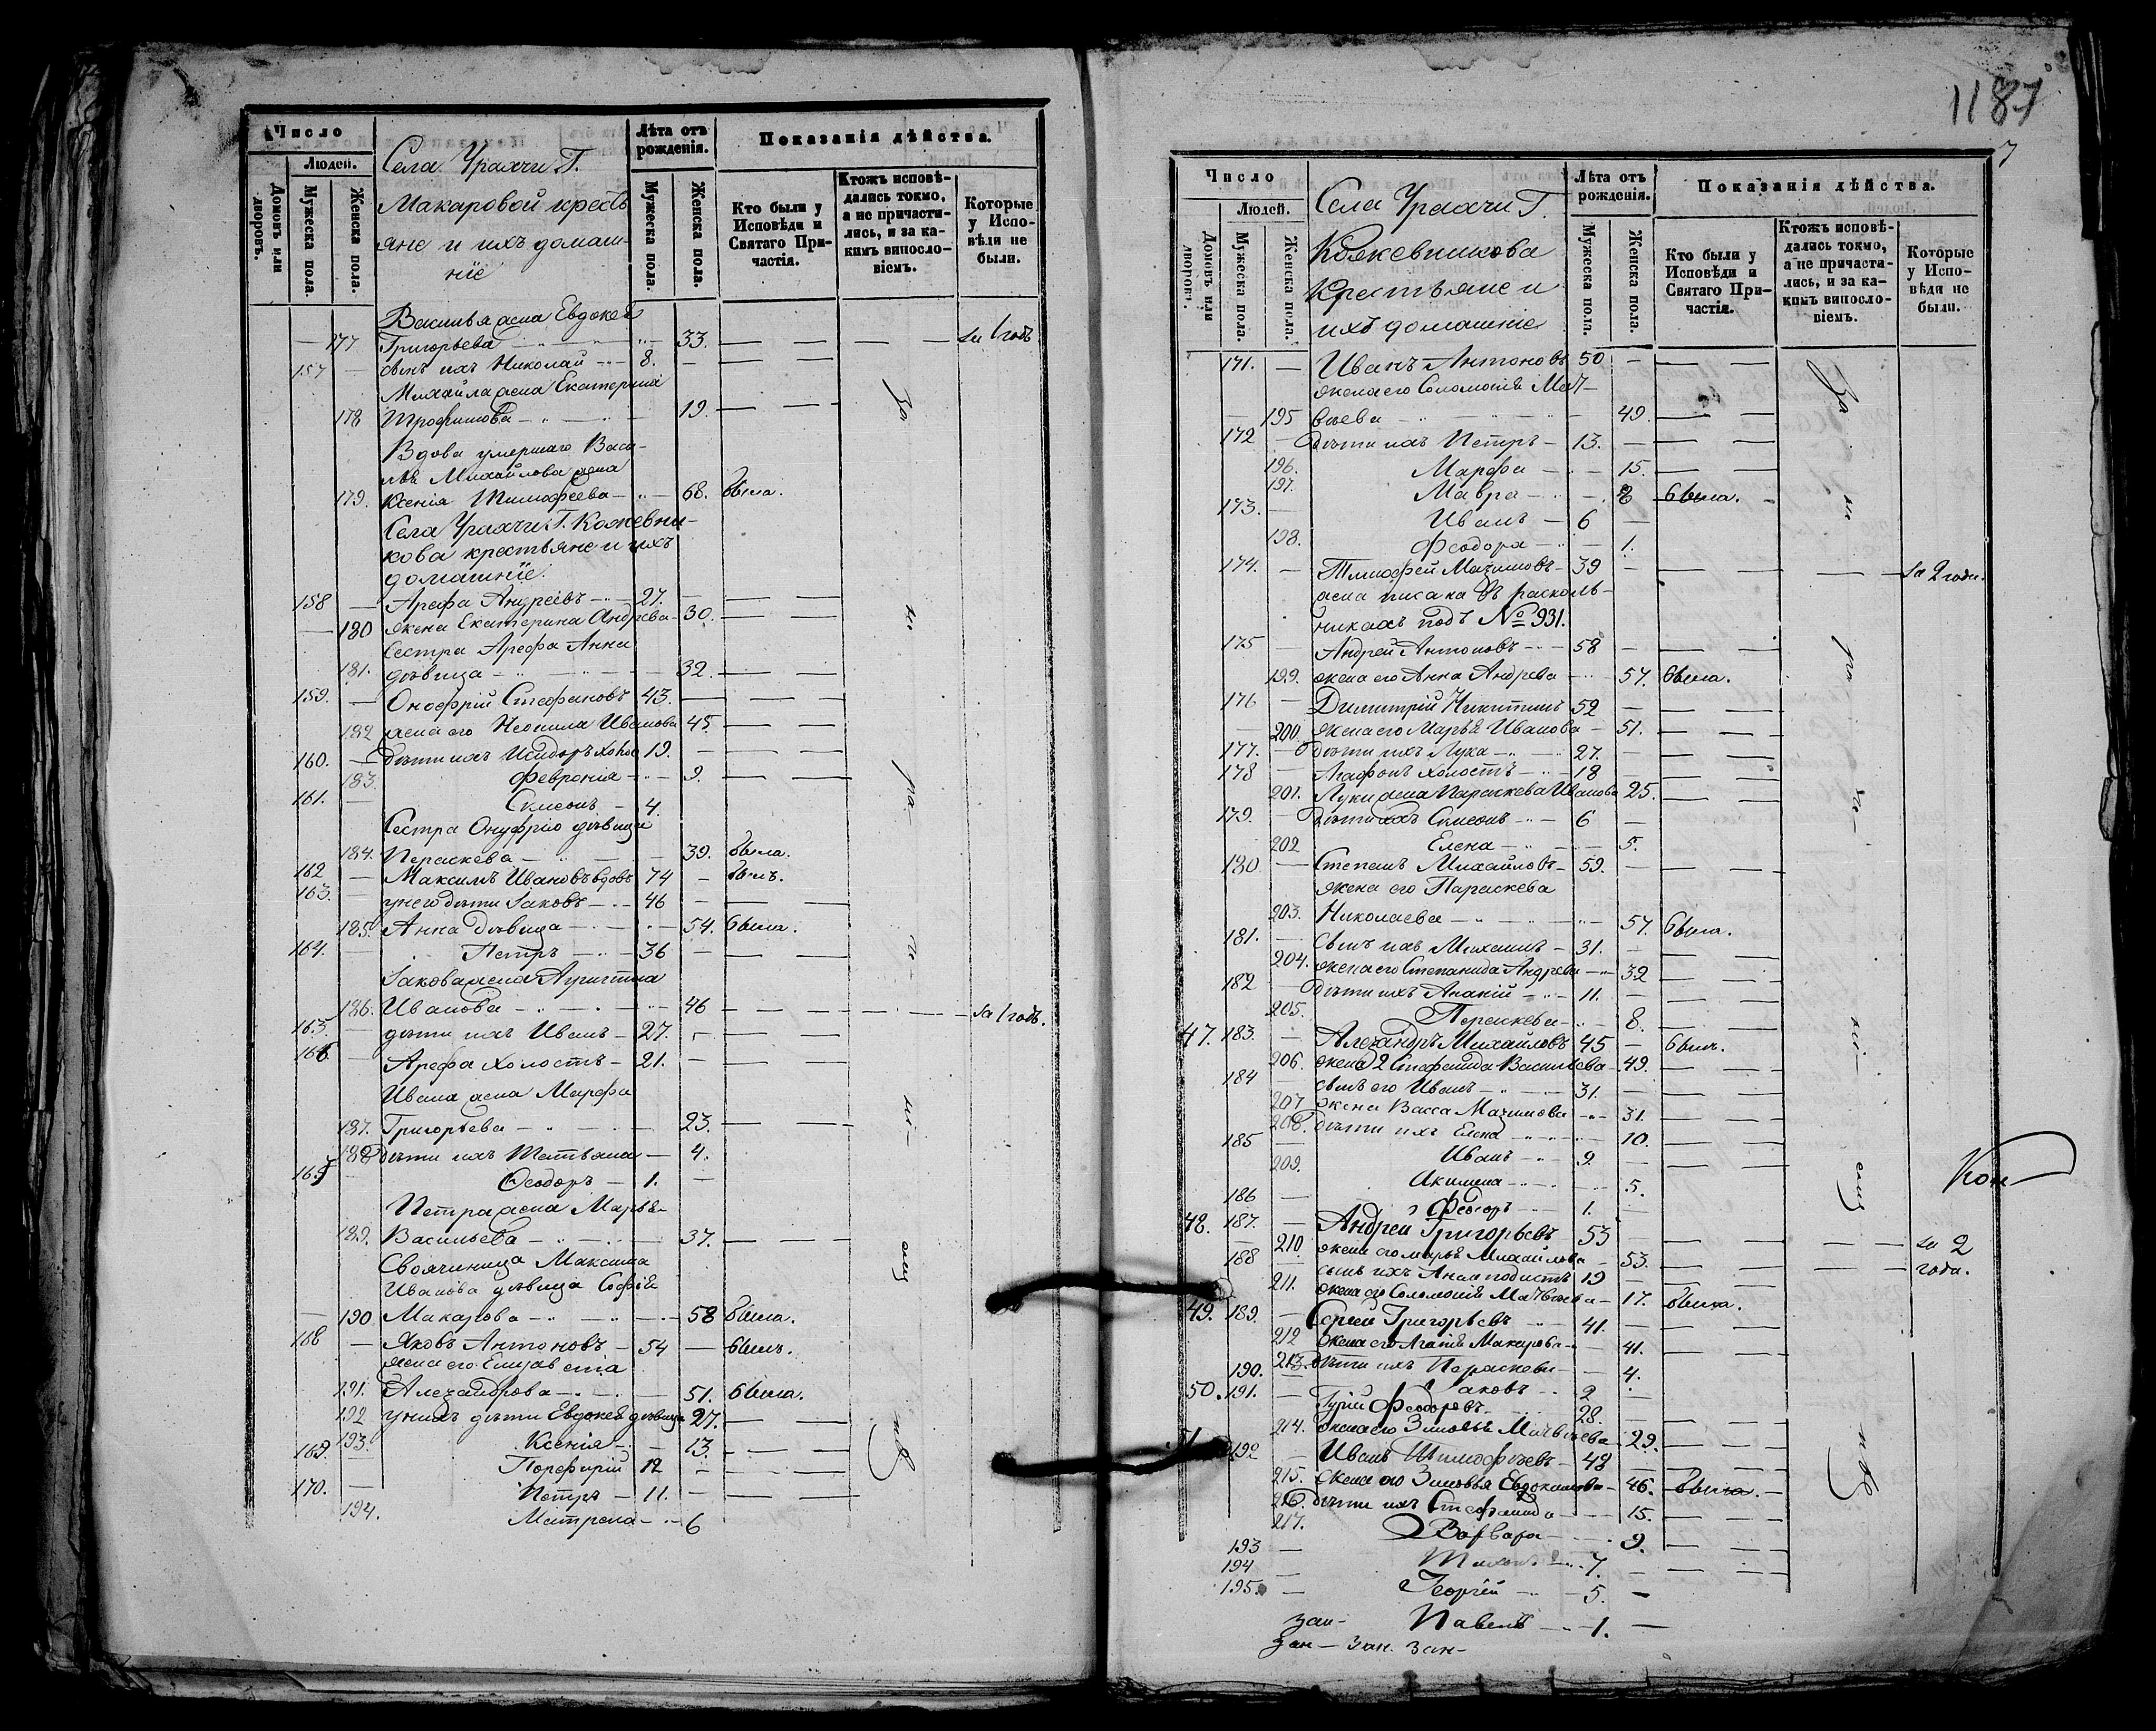 Число
Людей.
Домовъ или дворовъ.
Мужеска пола.
Женска пола.
Села Урахчи Г.
Макаровой кресть
яне и ихъ домаш-
ніе
Лѣта отъ рожденія.
Мужеска пола.
Женска пола.
Показанія дѣйства.
Кто были у Исповѣди и Святаго Причастія.
Ктожъ исповѣдались токмо, а не причастились, и за какимъ винословіемъ.
Которые у Исповѣди не были.
Василья жена Евдокея
177 Григорьева 33. за 1 годъ
157 сынъ ихъ Николай 8.
Михайла жена Екатерина
178 Трофимова 19.
Вдова умершаго Васи-
лья Михайлова жена
179. Ксенія Тимофеева 68. была.
Села Урахчи Г. Кожевни-
кова крестьяне и ихъ
домашніе.
158 Арефа Андреевъ 27.
180 жена Екатерина Андрева 30.
Сестра Арефа Анна
181. дѣвица 32.
159. Онофрій Стефановъ 43.
182 жена его Неонила Иванова 45.
160. дѣти ихъ Исидоръ холос 19.
183. Февронія 9.
161. Симеонъ 4.
Сестра Онуфрію дѣвица
184. Пераскева 39. была.
162 Максимъ Ивановъ вдовъ 74 былъ.
163. у него дѣти Іаковъ 46
185. Анна дѣвица 54. была.
164. Петръ 36
Іакова жена Агриппина
186. Иванова 46 за 1 годъ.
165. дѣти ихъ Иванъ 27.
166. Арефа холостъ 21.
Ивана жена Марфа
187. Григорьева 23.
188 дѣти ихъ Татьяна 4.
167 Ѳеодоръ 1.
Петра жена Марья
189. Васильева 37.
Своячиница Максима
Иванова дѣвица Софія
190 Макарова 58 была.
168 Яковъ Антоновъ 54 былъ.
жена его Елизавета
191. Александрова 51. была.
192 у нихъ дѣти Евдокея дѣвица 27.
193. Ксенія 13.
169. Порфирій 12
170. Петръ 11.
194. Матрона 6
1187
Число
Людей.
Домовъ или дворовъ.
Мужеска пола.
Женска пола.
Села Урахчи Г.
Кожевникова
Крестьяне и
ихъ домашніе
Лѣта отъ рожденія.
Мужеска пола.
Женска пола.
Показанія дѣйства.
Кто были у Исповѣди и Святаго Причастія.
Ктожъ исповѣдались токмо, а не причастились, и за какимъ винословіемъ.
Которые у Исповѣди не были.
171. Иванъ Антоновъ 50
жена его Соломонія Мат-
195 вѣева 49.
172 дѣти ихъ Петръ 13.
196. Марфа 15.
197. Мавра 8 была.
173. Иванъ 6
198. Феодора 1.
174. Тимофей Мазимовъ 39 за 2 года.
жена писана въ расколь-
никахъ подъ № 931.
175 Андрей Антоновъ 58
199. жена его Анна Андрева 57. была.
176 Димитрій Никитинъ 52
200. жена его Марья Иванова 51.
177. дѣти ихъ Лука 27.
178 Агафонъ холостъ 18
201. Луки жена Параскева Иванова 25.
179. дѣти ихъ Симеонъ 6
202 Елена 5.
180 Степанъ Михайловъ 59.
жена его Параскева
203. Николаева 57. была.
181. сынъ ихъ Михаилъ 31.
204. жена его Степанида Андрева 32
182 дѣти ихъ Ананій 11.
205. Пераскева 8.
47. 183. Александръ Михайловъ 45 былъ.
206. жена 2 Стефанида Васильева 49.
184 сынъ его Иванъ 31.
207 жена Васса Мазимова 31.
208. дѣти ихъ Елена 10.
185 Иванъ 9.
209. Акилина 5.
186 Феодоръ 1.
Кон
48. 187. Андрей Григорьевъ 53 за 2
210. жена его Марья Михайлова 53. года.
188 сынъ ихъ Анемподистъ 19
211. жена его Соломонія Матвѣева 17. была.
49. 189. Сергей Григорьевъ 41.
212 жена его Агапія Макарова 41.
213. дѣти ихъ Пераскева 4.
190. Іаковъ 2
50. 191. Гурій Феодоровъ 28.
214. жена его Зиновья Матвѣева 29.
51 192 Иванъ Тимофѣевъ 48
215. жена его Зиновья Евдокимова 46. была.
216. дѣти ихъ Стефанида 15.
217. Варвара 9.
193 Тихонъ 7.
194 Георгій 5.
195. Павелъ 1.
зан-
зан- зан. зан-